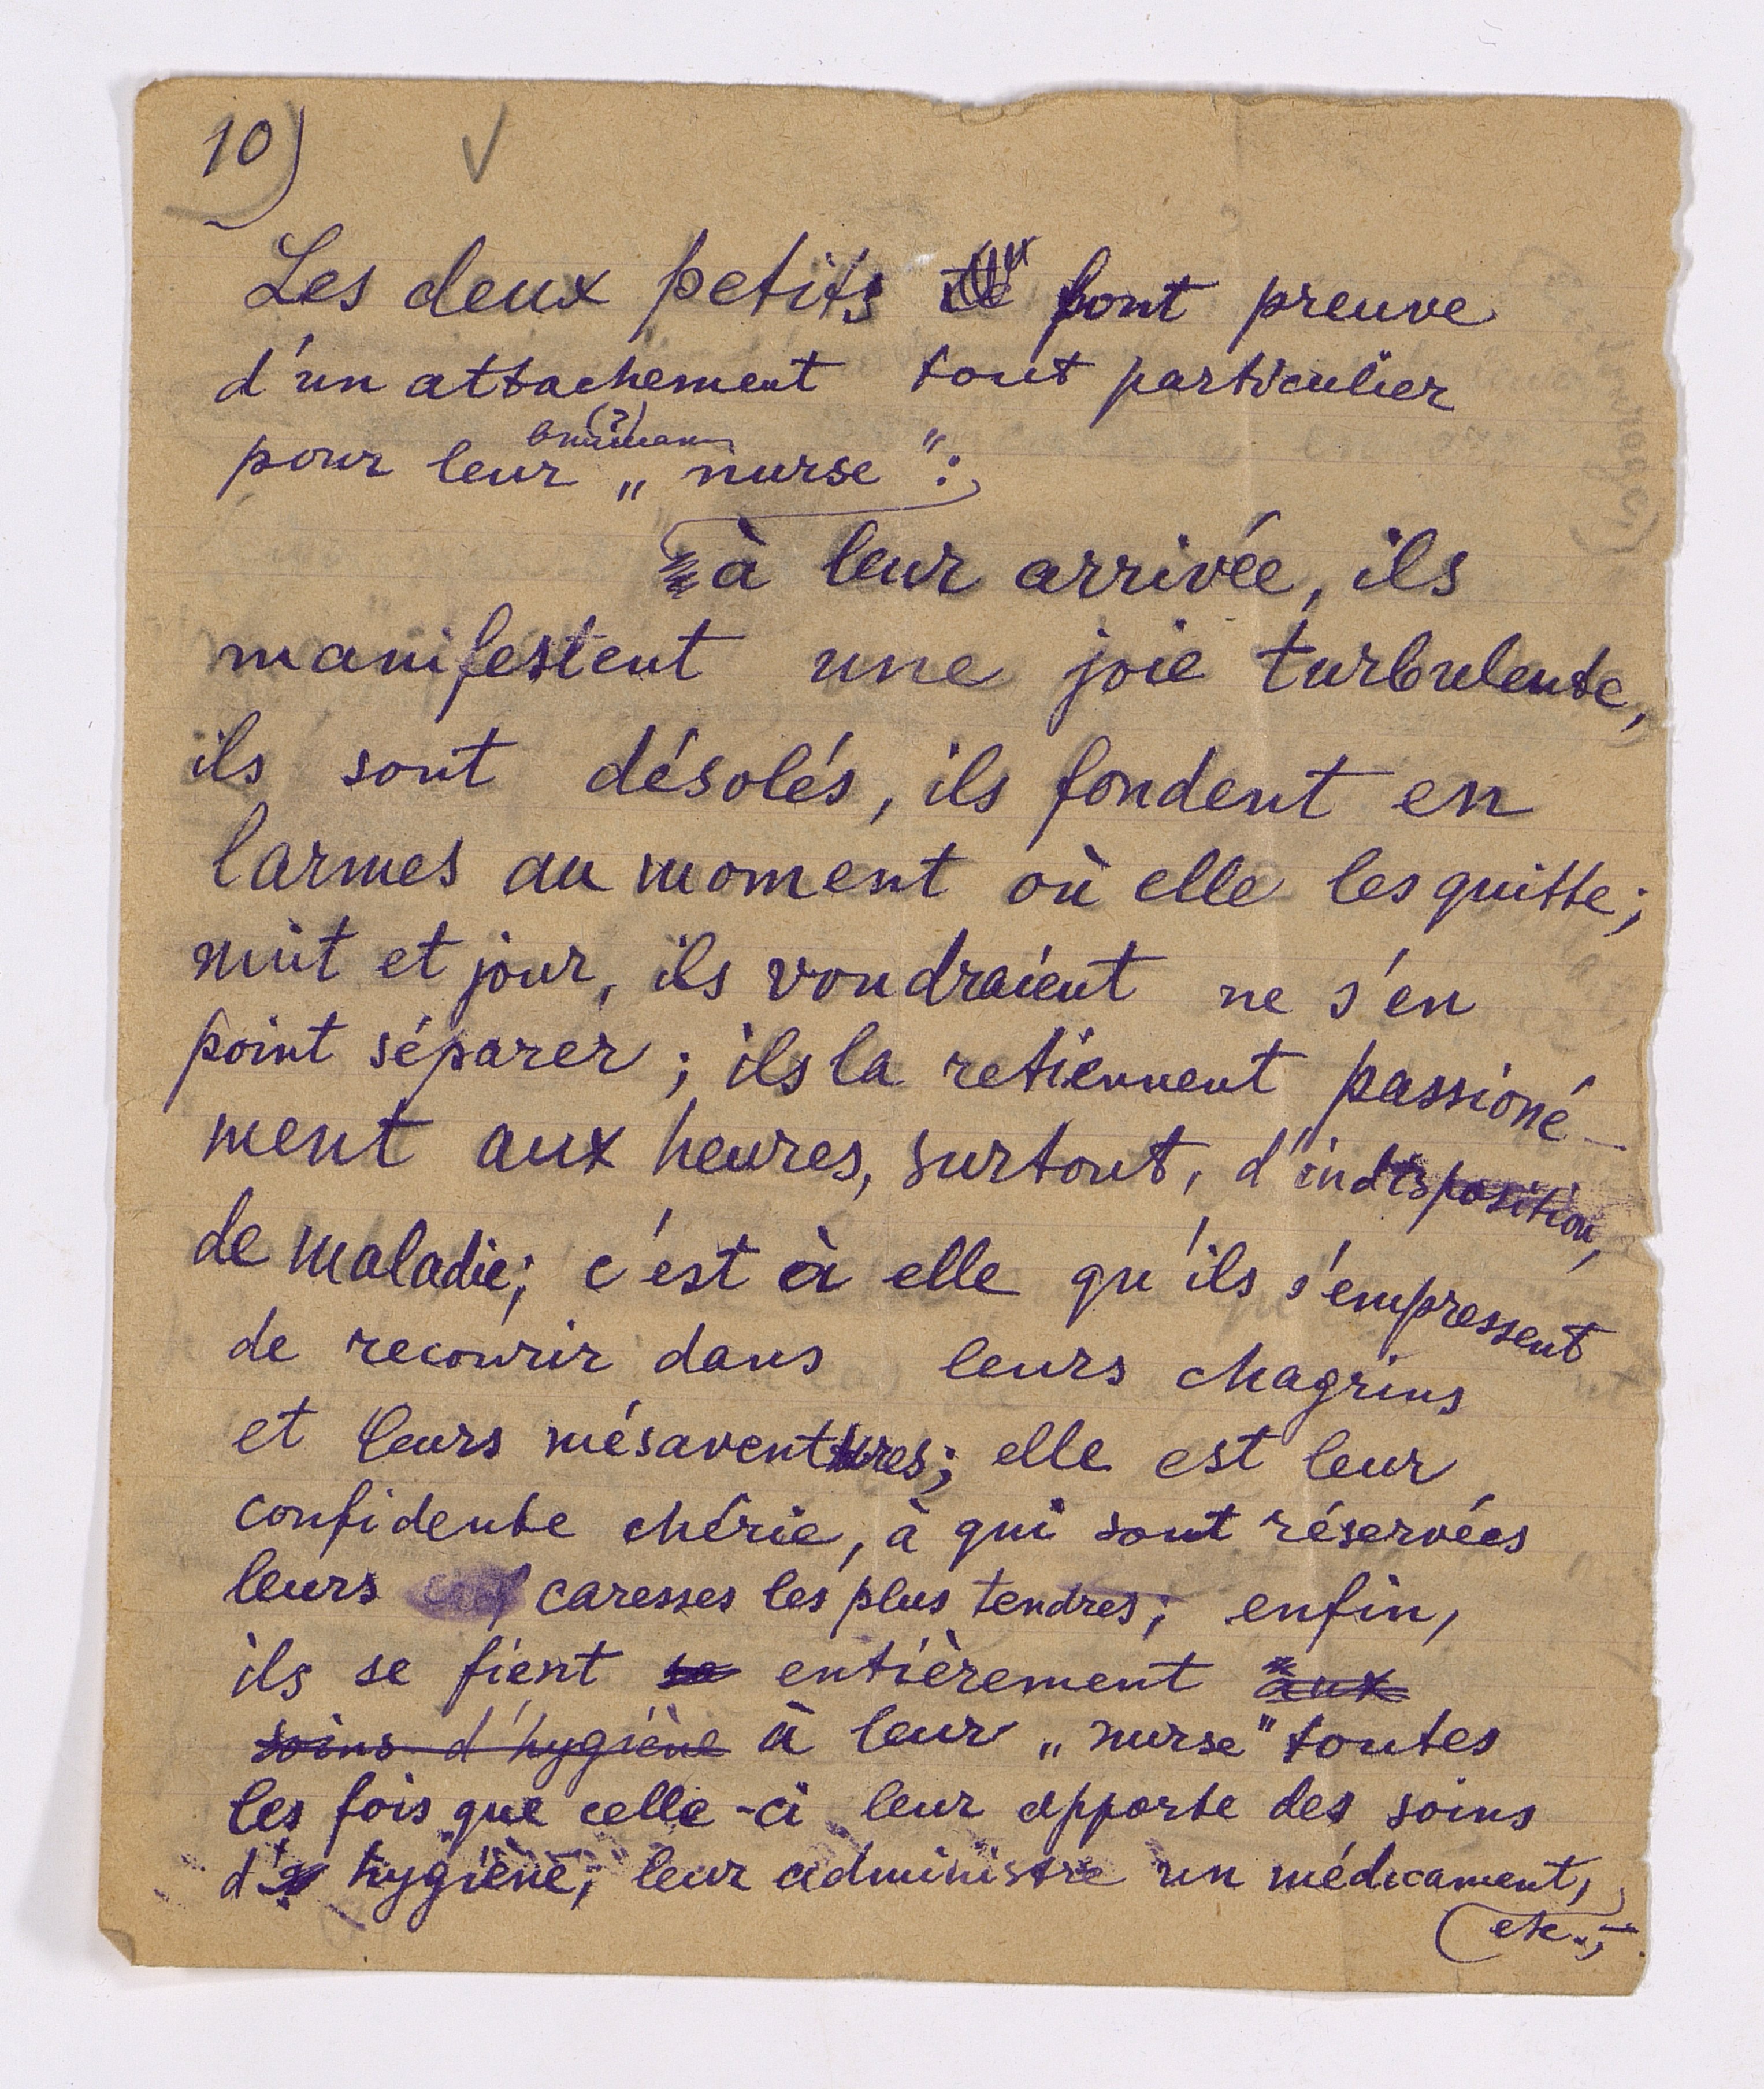 10)
Les deux petits font preuve
d'un attachement tout particulier
(?)
pour leur „nurse":
à leur arrivée, ils
manifestent une joie turbulente,
ils sont désolés, ils fondent en
larmes au moment où elle les quitte;
nuit et jour, ils voudraient ne s'en
point séparer; ils la retiennent passioné-
ment aux heures, surtout, d'indisposition,
de maladie; c'est à elle qu'ils s'empressent
de recourir dans leurs chagrins
et leurs mésaventures; elle est leur
confidente chérie, à qui sont réservées
leurs caresses les plus tendres; enfin,
ils se fient se entièrement aux
soins d'hygiène à leur „nurse" toutes
les fois que celle-ci leur apporte des soins
d'hygiène, leur administre un médicament,
etc.;